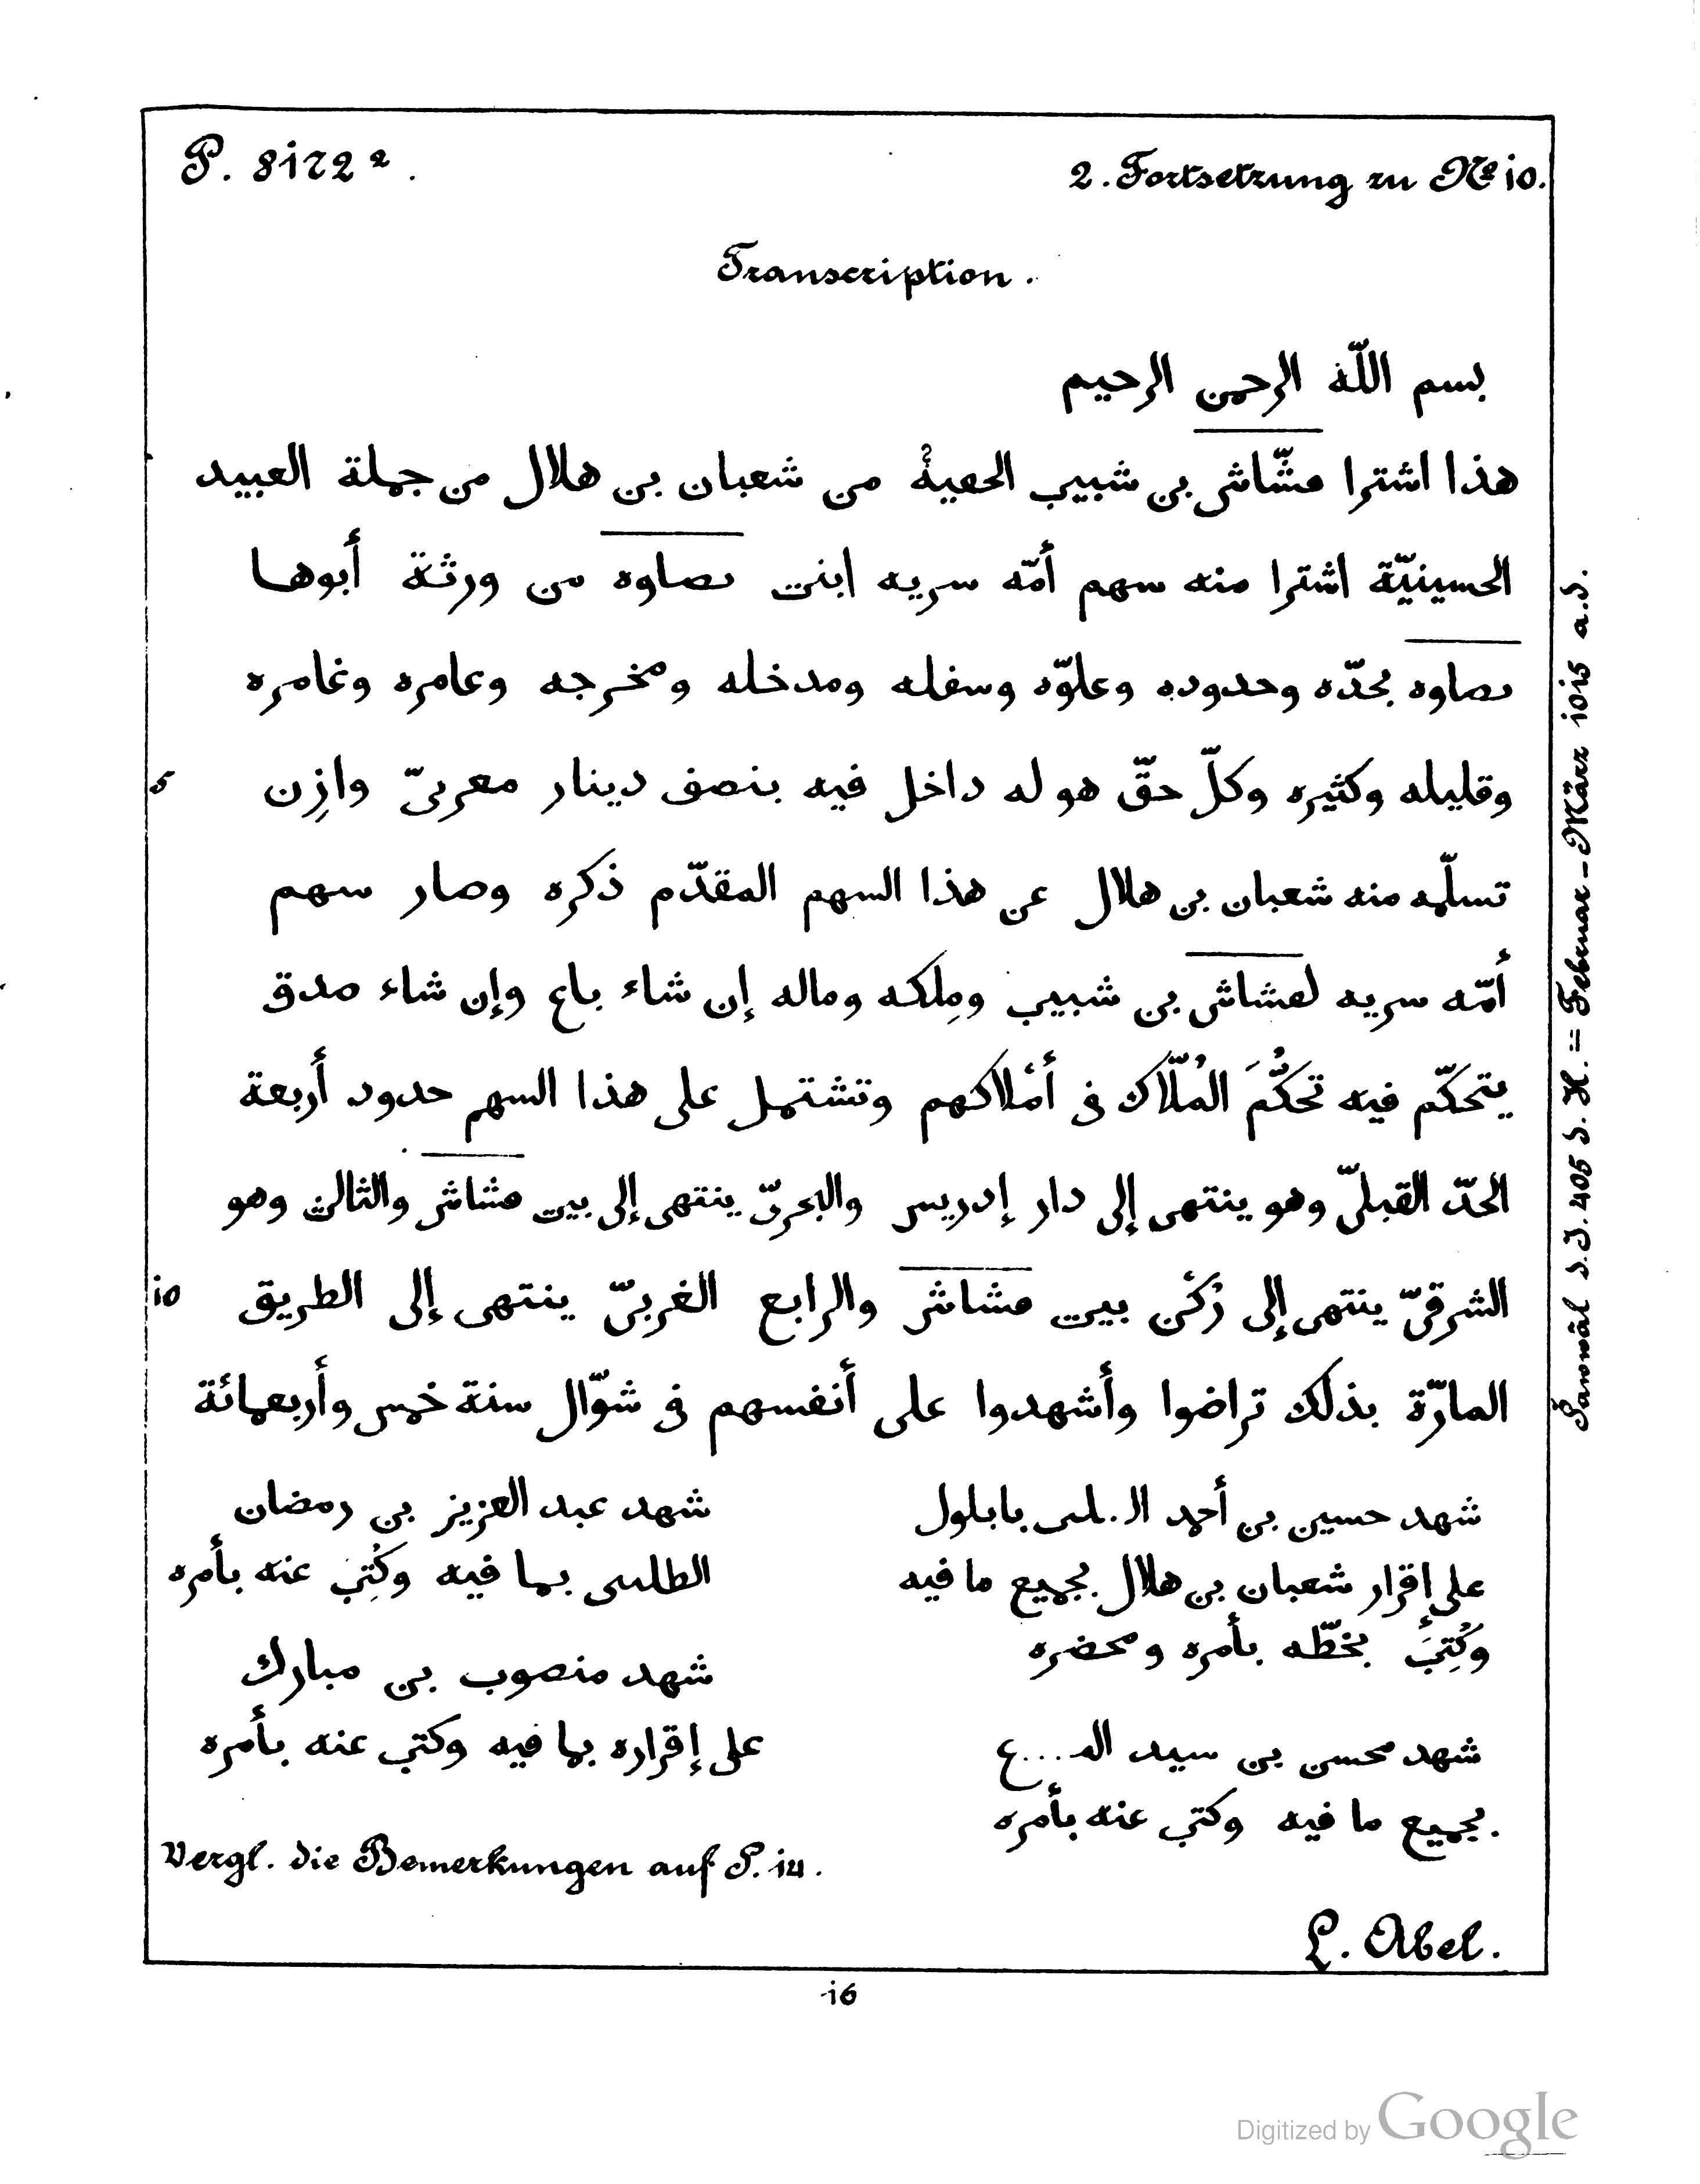 P. 8172 a.
2. Fortsetzung zu No 10.
Transcription.
بسم اللّه الرحمن الرحيم
هذا اشترا مشّاش بن شبيب الحعية؟ من شعبان بن هلال من جملة العبيد
الحسينيّة اشترا منه سهم أمّه سريه ابنت ںصاوه من ورثة أبوها
ںصاوه بحدّه وحدوده وعلوّه وسفله ومدخله ومخرجه وعامره وغامره
5 وقليله وكثيره وكلّ حقّ هو له داخل فيه بنصف دينار معربىّ وازِن
تسلّمه منه شعبان بن هلال عن هذا السهم المقدّم ذكره وصار سهم
أمّه سريه لمشاش بن شبيب ومِلكه وماله إن شاء باع وإن شاء صدق
يتحكّم فيه تحكُّمَ المُلّاك فى أمْلاكهم وتشتمل على هذا السهم حدود أربعة
الحدّ القبلىّ وهو ينتهى إلى دار إدريس والبحرىّ ينتهى إلى بيت مشاش والثالث وهو
10 الشرقىّ ينتهى إلى رُكْن بيت مشاش والرابع الغربىّ ينتهى إلى الطريق
المارّة بذلك تراضوا وأشهدوا على أنفسهم فى شوّال سنة خمس وأربعمائة
شهد حسين بن أحمد الـ.لمى بابلول
على إقرار شعبان بن هلال بجميع ما فيه
وكُتِبَ بخطّه بأمره ومحضره
شهد محسن بن سيد الم....ع
بجميع ما فيه وكتب عنه بأمره
شهد عبد العزيز بن رمضان
الطلسى بما فيه وكُتِبَ عنه بأمره
شهد منصوب بن مبارك
على إقراره بما فيه وكتب عنه بأمره
Vergl. die Bemerkungen auf P. 14.
L. Abel.
Šawwâl d.J. 405 d. H. = Februar – März 1015 a.D.
16
Digitized by Google